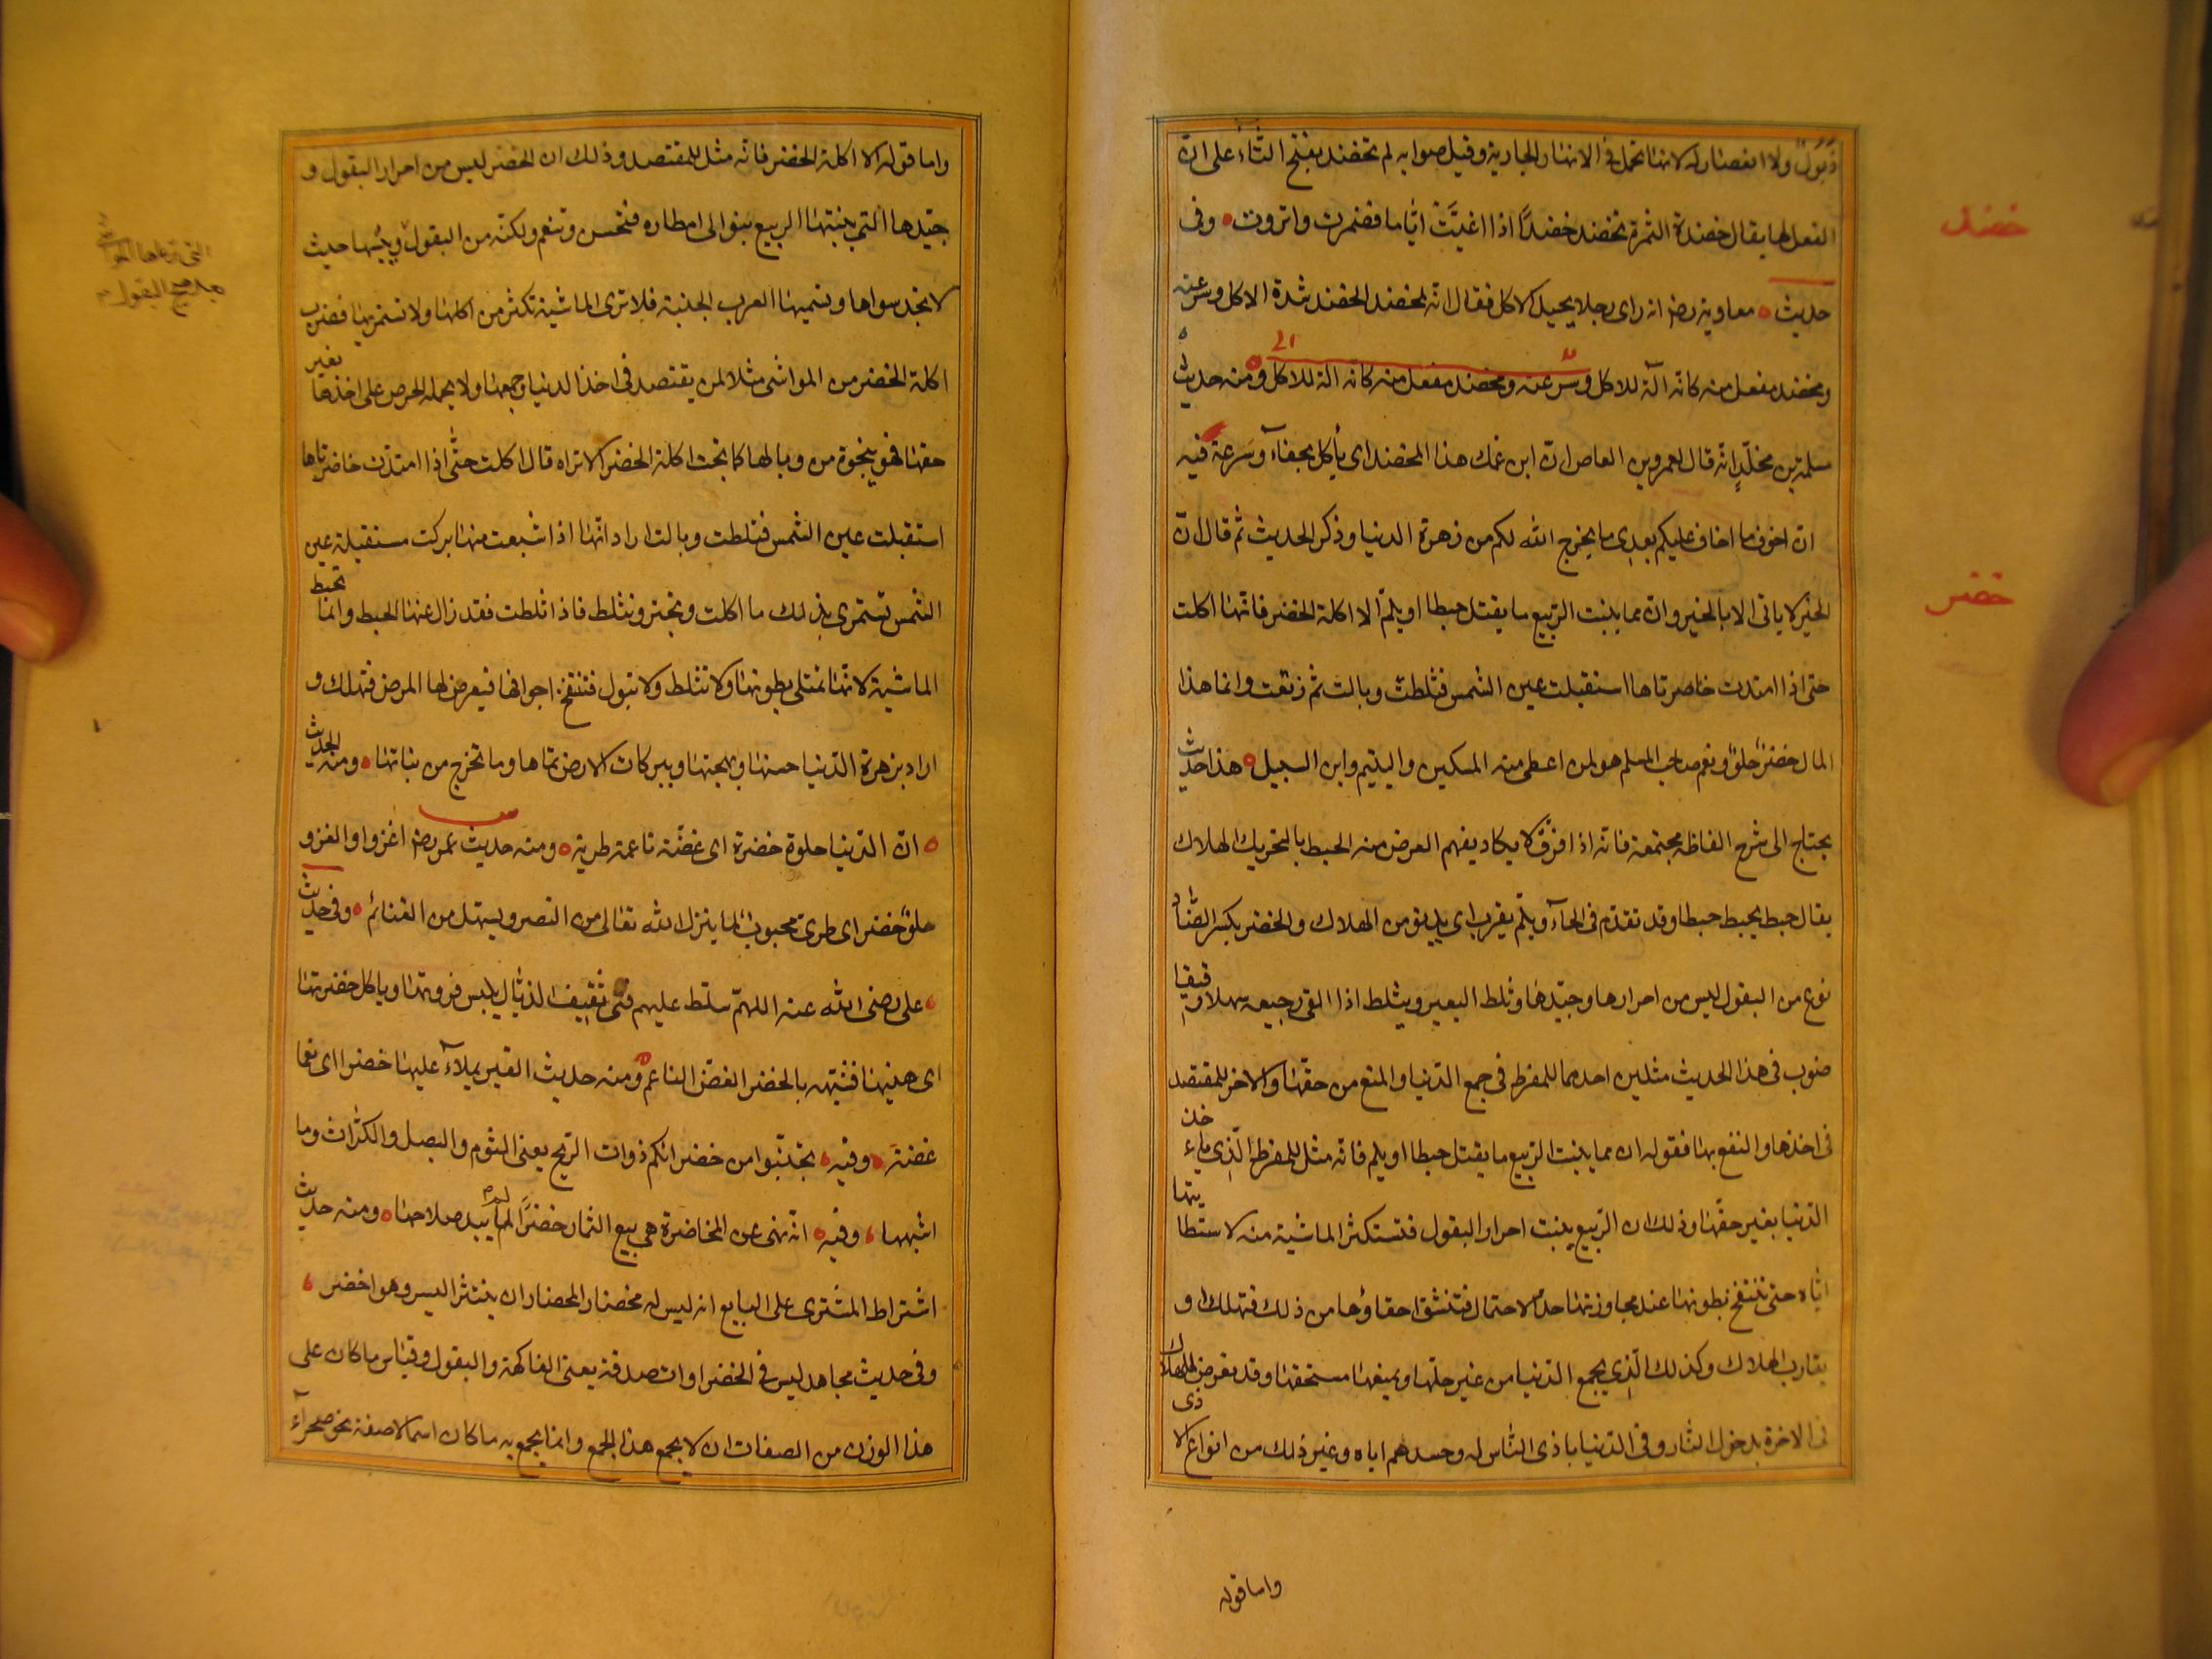 ذَبُولٌ ولا انعصار له لانها تحمل في الانهار الجارية وقيل صوابه لم تخضد بفتح التاء على ان
الفعل لها يقال خضدة الثمرة تخضد خضدًا اذا اغيّت ايّاما فضمرت وانزوت ه وفى
خضد
حديث ه معاوية رضه انه راى رجلا يجيل الاكل فقال انه لمخضد الخضد شدة الاكل وسرعته
ومخضد مفعل منه كانه آلة للاكل وسرعته ومخضد مفعل منه كانه آلة للاكل ومنه حديث
مسلمة بن مخلّدٍ انه قال لعمرو بن العاص انّ ابن عمك هذا المخضد اى يأكل بجفآء وسرعة فيه
ان اخوف ما اخاف عليكم بعدى ما يخرج الله لكم من زهرة الدنيا وذكر الحديث ثم قال انّ
خضر
الخير لا ياتى الا بالخير وان مما ينبت الربيع ما يقتل حبطا او يلمّ الا اكلة الخضر فانها اكلت
حتى اذا امتدت خاصرتاها استقبلت عين الشمس فثلطت وبالت ثم رتعت وانما هذا
المال خضرٌ حلوٌ ونعم صاحب المسلم هو لمن اعطى منه المسكين واليتيم وابن السبيل ه هذا حديث
يحتاج الى شرح الفاظه مجتمعة فانه اذا فرّق لا يكاد يفهم الغرض منه الحبط بالتحريك الهلاك
يقال حبط يحبط حبطا وقد تقدّم فى الحآء ويلمّ يقرب اى يدنو من الهلاك والخضر بكسر الضاد
نوع من البقول ليس من احرارها وجيّدها وثلط البعير ويثلط اذا القى رجيعه سهلا رقيقا
ضوب فى هذا الحديث مثلين احدهما للمفرط فى جمع الدنيا والمنع من حقها والاخر للمقتصد
فى اخذها والنفع بها فقوله ان مما ينبت الربيع ما يقتل حبطا او يلم فانه مثل للمفرط الّذى ياءخذ
الدنيا بغير حقها وذلك ان الربيع ينبت احرار البقول فتستكثر الماشية منه لاستطابتها
ايّاه حتى تنتفخ بطونها عند مجاوزتها حدّ الاحتمال فتنشق احقاؤها من ذلك فتهلك او
يقارب الهلاك وكذلك الّذى يجمع الدنيا من غير حلّها ويمنعها مستحقها وقد تعرض للهلاك
فى الاخرة بدخول النار وفى الدنيا باذى الناس له وحسدهم اياه وغير ذلك من انواع الاذى
واما قوله
واما قوله الا اكلة الخضر فانه مثل للمقتصد وذلك ان الخضر ليس من احرار البقول و
جيّدها التى ينبتها الربيع بتوالى امطاره فتحسن وتنعم ولكنّه من البقول ويبسها حيث
التى ترعاها المواشى
بعد هيج البقول
لا تجد سواها وتسميها العرب الجنبة فلا ترى الماشية تكثر من اكلها ولا تستمريها فضرب
اكلة الخضر من المواشى مثلا لمن يقتصد فى اخذ الدنيا وجمعها ولا يحمله الحرص على اخذها بغير
حقها فهو بنجوة من وبالها كما نجت اكلة الخضر الا تراه قال اكلت حتى اذا امتدّت خاصرتاها
استقبلت عين الشمس فثلطت وبالت اراد انها اذا شبعت منها بركت مستقبلة عين
الشمس تستمرى بذلك ما اكلت وتجتر وتثلط فاذا ثلطت فقد زال عنها الحبط وانما تحبط
الماشية لانها تمتلى بطونها ولا تثلط ولا تبول فتنتفخ اجوافها فيعرض لها المرض فتهلك و
اراد بزهرة الدّنيا حسنها وبهجتها وببركات الارض نماها وما تخرج من نباتها ه ومنه الحديث
ه انّ الدّنيا حلوة خضرة اى غضّة ناعمة طرية ه ومنه حديث عمر رضه اغزوا والغزو
حلوٌ خضر اى طرى محبوب لما ينزل الله تعالى من النصر ويسهل من الغنائم ه وفى حديث
على رضى الله عنه اللهمّ سلّط عليهم فتى ثقيف الذيّال يلبس فروتها وياكل خضرتها
اى هنيئها فشبّهه بالخضر الغضّ الناعم ومنه حديث القبر يملآء عليه خضرا اى نعما
غضة ه وفيه ه تجنّبوا من خضرائكم ذوات الريح يعنى الثوم والبصل والكرّاث وما
اشبهها ه وفيه ه انه نهى عن المخاضرة هى بيع الثمار خضرًا لم يبد صلاحها ه ومنه حديث
اشتراط المشترى على البايع انه ليس له مخضار المخضار ان ينتثر البسر وهو اخضر ه
وفى حديث مجاهد ليس فى الخضراوات صدقة يعنى الفاكهة والبقول وقياس ما كان على
هذا الوزن من الصفات ان لا يجمع هذا الجمع وانما يجمع به ما كان اسما لا صفة نحو صحرآء